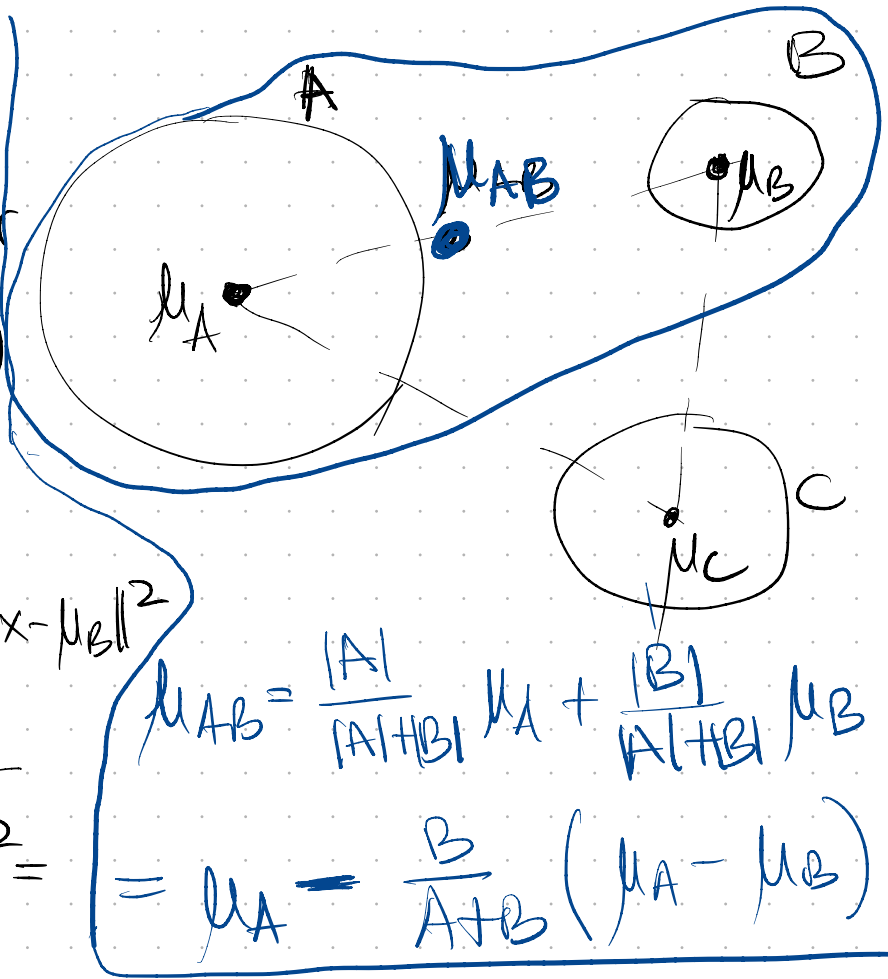 A
B
μ_AB
μ_B
μ_A
C
μ_C
x - μ_B||²
μ_AB = |A| / (|A|+|B|) μ_A + |B| / (|A|+|B|) μ_B
2 =
= μ_A - B / (A+B) (μ_A - μ_B)